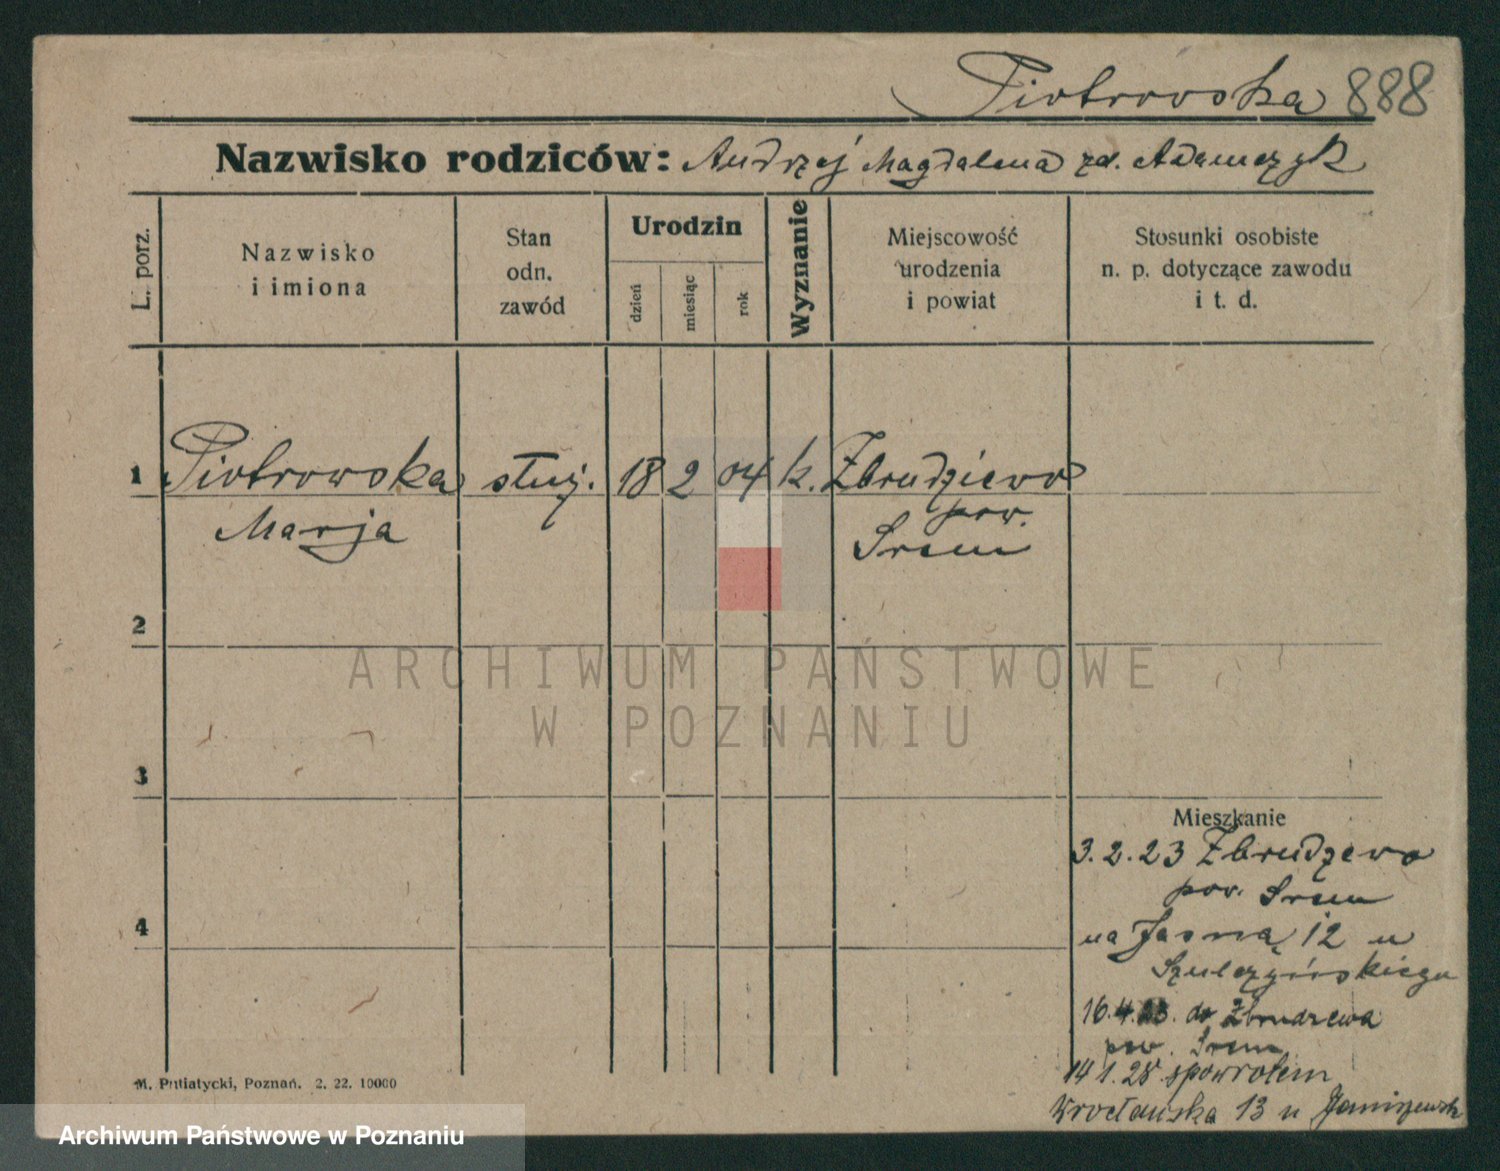 Piotrowska 888
Nazwisko rodziców: Andrzej Magdalena zd. Adamczyk
L. porz.
Nazwisko
i imiona
Stan
odn.
zawód
Urodzin
dzień
miesiąc
rok
Wyznanie
Miejscowość
urodzenia
i powiat
Stosunki osobiste
n. p. dotyczące zawodu
i t. d.
1 Piotrowska służ. 18 2 04 k. Zbrudziewo
Marja
pow.
Srem
2
ARCHIWUM PAŃSTWOWE
W POZNANIU
3
Mieszkanie
3.2.23 Zbrudzewo
pow. Srem
4
na Jasną 12 u
Szulczyńskiego
16.4.23. do Zbrudzewa
pow. Srem
14 1.28 spowrotem
Wrocławska 13 u
M. Putiatycki, Poznań. 2. 22. 10000
Archiwum Państwowe w Poznaniu